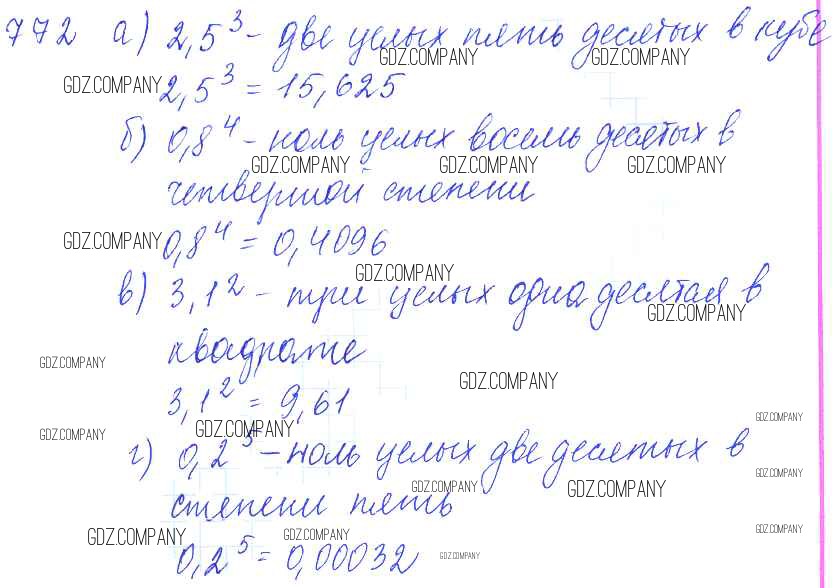 772 а) 2,5³ - две целых пять десятых в кубе
GDZ.COMPANY GDZ.COMPANY
GDZ.COMPANY 2,5³ = 15,625
б) 0,8⁴ - ноль целых восемь десятых в
GDZ.COMPANY GDZ.COMPANY GDZ.COMPANY
четвертой степени
GDZ.COMPANY 0,8⁴ = 0,4096
GDZ.COMPANY
в) 3,1² - три целых одна десятая в
GDZ.COMPANY
квадрате
GDZ.COMPANY
GDZ.COMPANY
3,1² = 9,61
GDZ.COMPANY
GDZ.COMPANY GDZ.COMPANY
г) 0,2⁵ - ноль целых две десятых в
GDZ.COMPANY
GDZ.COMPANY GDZ.COMPANY
степени пять
GDZ.COMPANY GDZ.COMPANY GDZ.COMPANY
0,2⁵ = 0,00032 GDZ.COMPANY